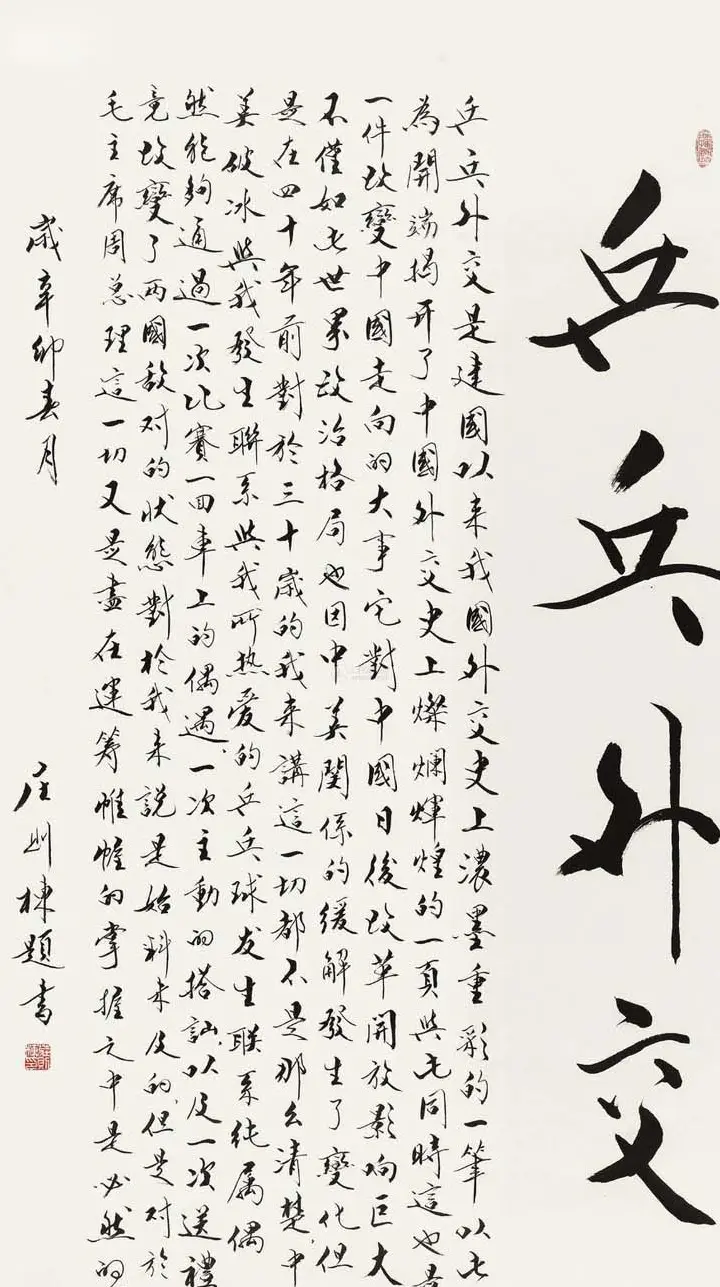 乒乓外交
乒乓外交是建國以来我國外交史上濃墨重彩的一筆以此
為開端揭开了中國外交史上燦爛輝煌的一頁與此同時這也是
一件改變中國走向的大事它對中國日後改革開放影响巨大
不僅如此世界政治格局也因中美関係的缓解發生了變化但
是在四十年前對於三十歲的我来講這一切都不是那么清楚,中
美破冰與我發生聯系與我所热爱的乒乓球发生联系纯属偶
然能夠通過一次比賽一回車上的偶遇,一次主動的搭訕,以及一次送禮
竟改變了两國敌对的狀態對於我来説是始料未及的,但是对於
毛主席周总理這一切又是盡在運筹帷幄的掌握之中是必然的
歲辛卯春月
庄则棟題書